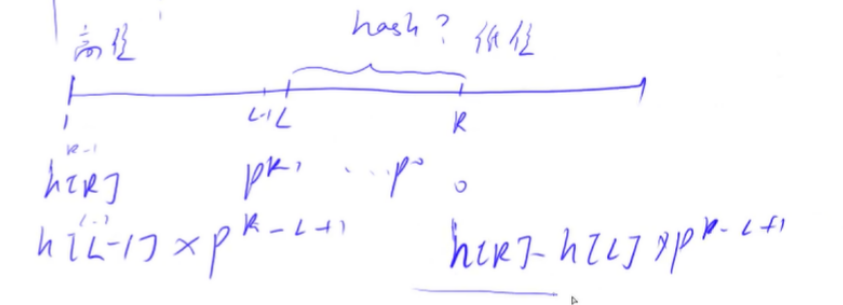 高位 hash? 低位
1 L-1 L R
R-1
h[R] p^R-1 ... p^0 0
L-2
h[L-1] × p^R-L+1 h[R]-h[L] × p^R-L+1